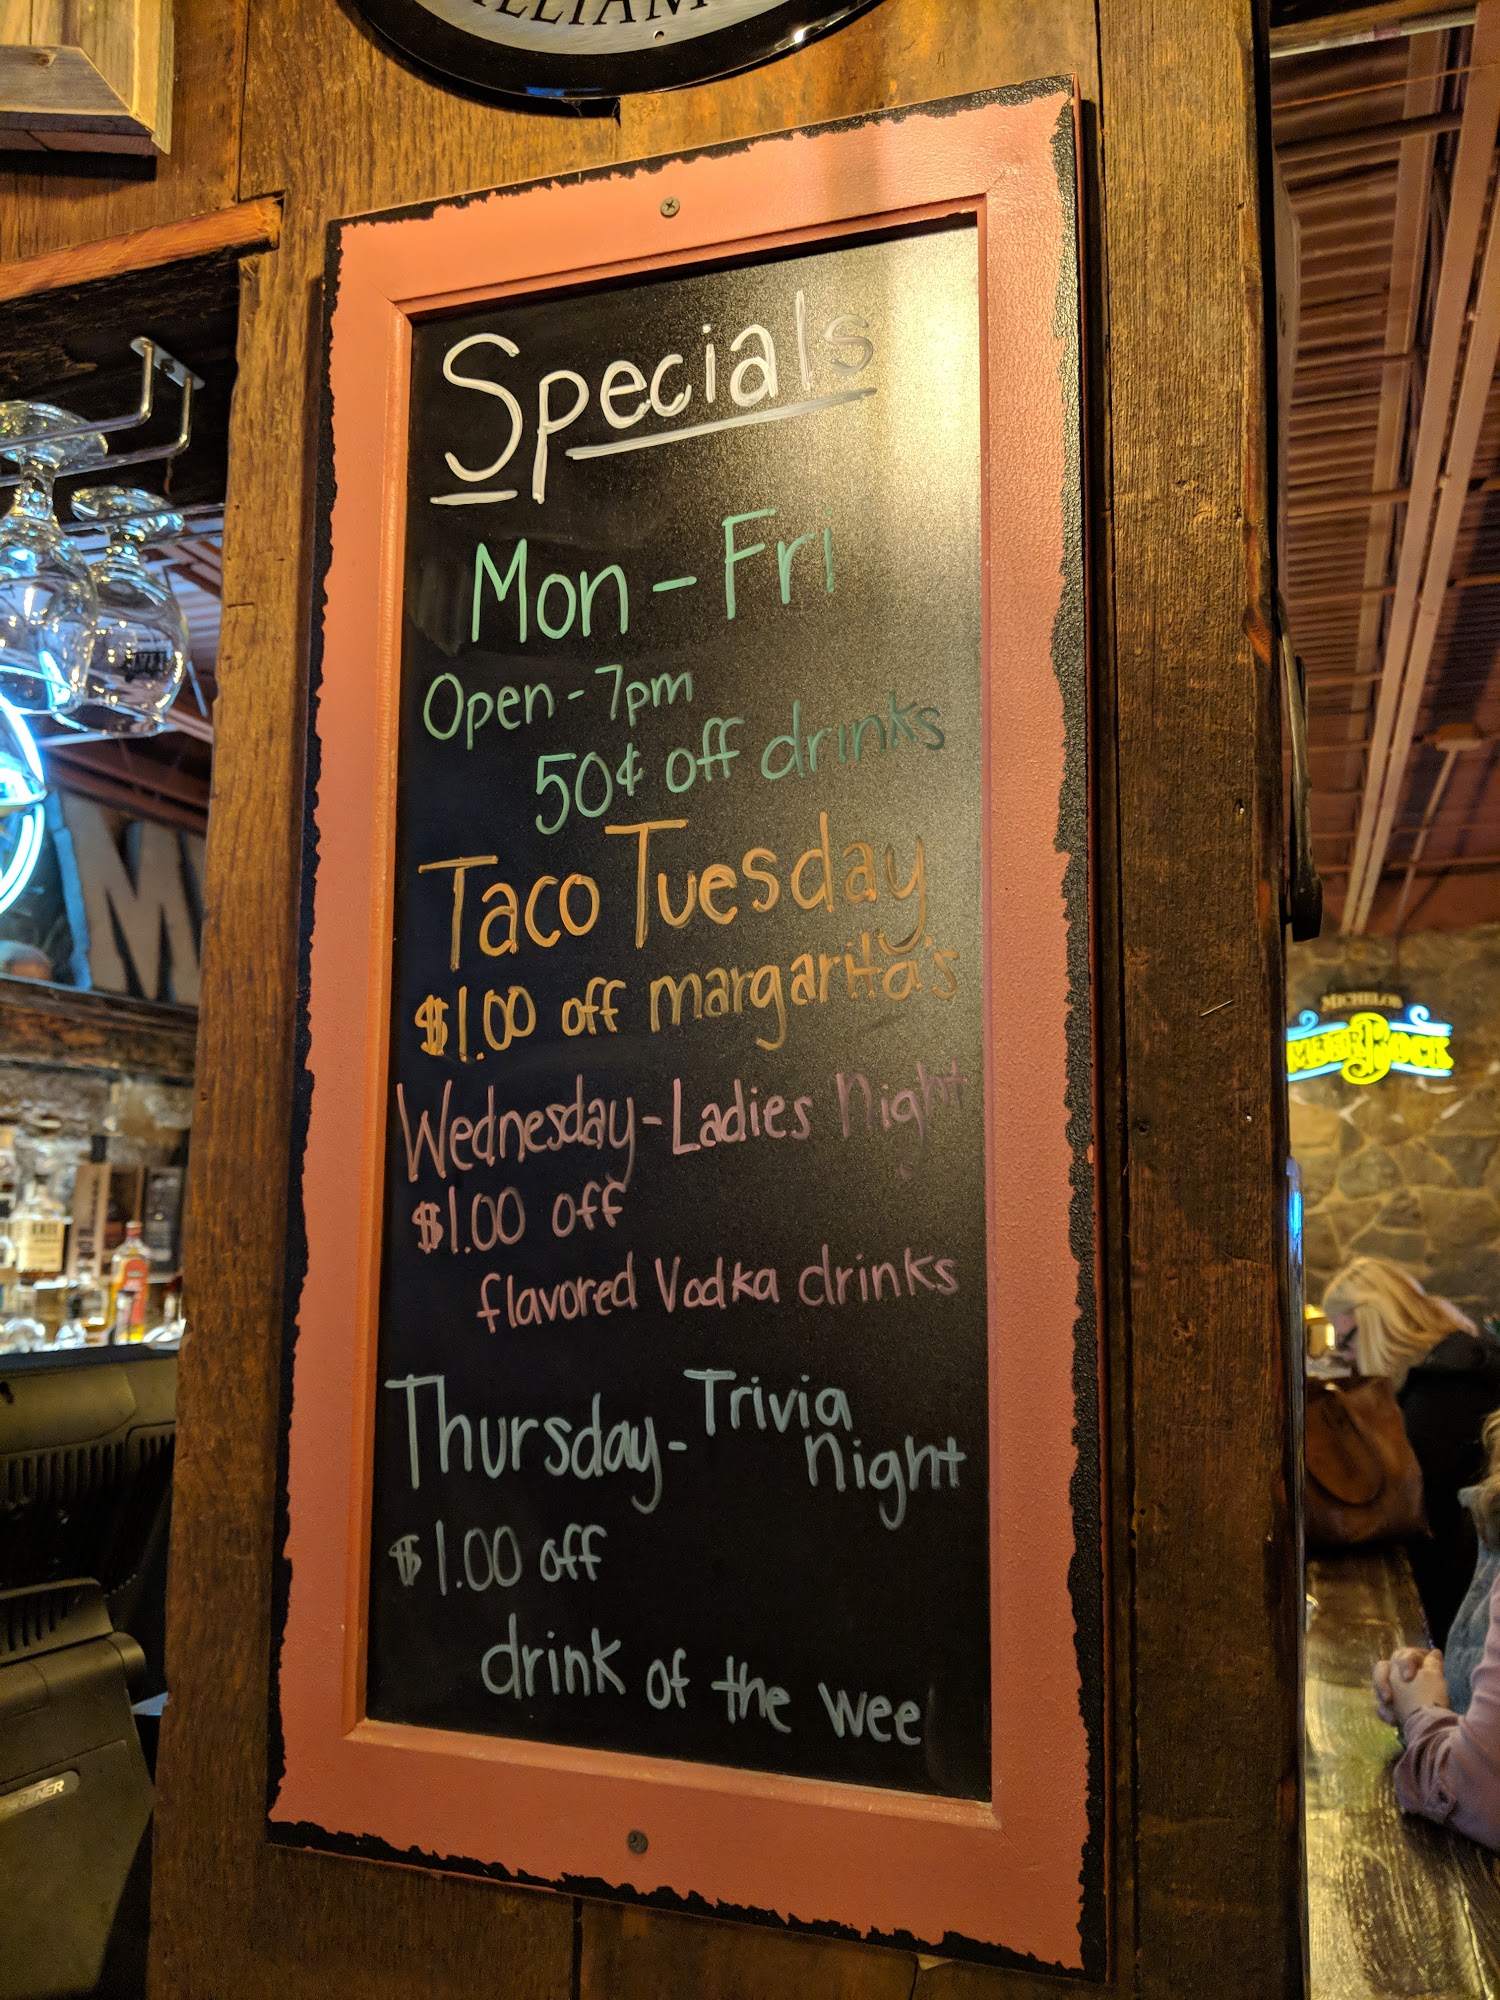 Specials
Mon - Fri
Open - 7pm
50¢ off drinks
Taco Tuesday
$1.00 off margarita's
Wednesday - Ladies night
$1.00 off
flavored Vodka drinks
Thursday - Trivia
night
$1.00 off
drink of the wee
MICHELOB
M